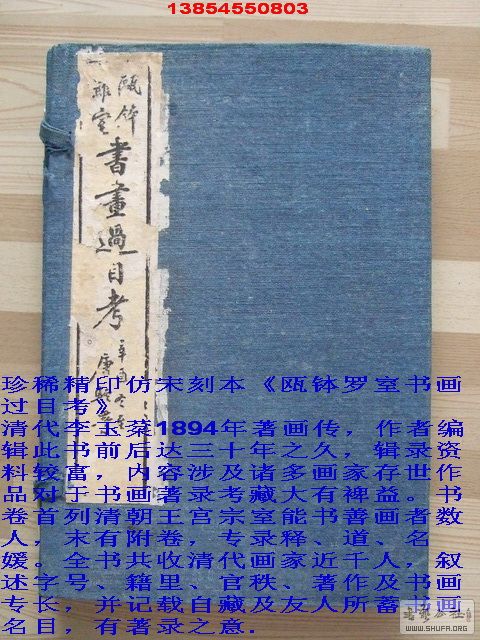 13854550803
瓯钵
羅室
書畫過目考
辛酉冬至
珍稀精印仿宋刻本《瓯钵罗室书画
过目考》
清代李玉棻1894年著画传，作者编
辑此书前后达三十年之久，辑录资
料较富，内容涉及诸多画家存世作
品对于书画著录考藏大有裨益。书
卷首列清朝王宫宗室能书善画者数
人，末有附卷，专录释、道、名
媛。全书共收清代画家近千人，叙
述字号、籍里、官秩、著作及书画
专长，并记载自藏及友人所蓄书画
名目，有著录之意.
WWW.SHUFA.ORG